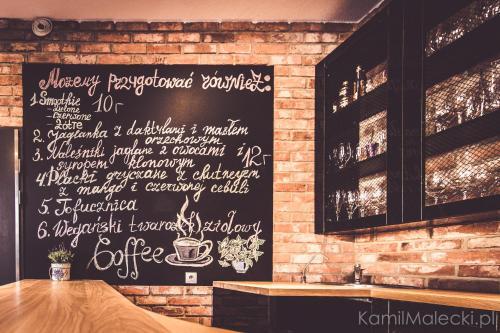 Możemy przygotować również:
1. Smoothie 10 zł
- zielone
- czerwone
- żółte
2. Jaglanka z daktylami i masłem
orzechowym
3. Naleśniki jaglane z owocami i
syropem klonowym 12 zł
4. Placki gryczane z chutneyem
z mango i czerwonej cebuli
5. Tofucznica
6. Wegański twarożek ziołowy
Coffee
KamilMalecki.pl